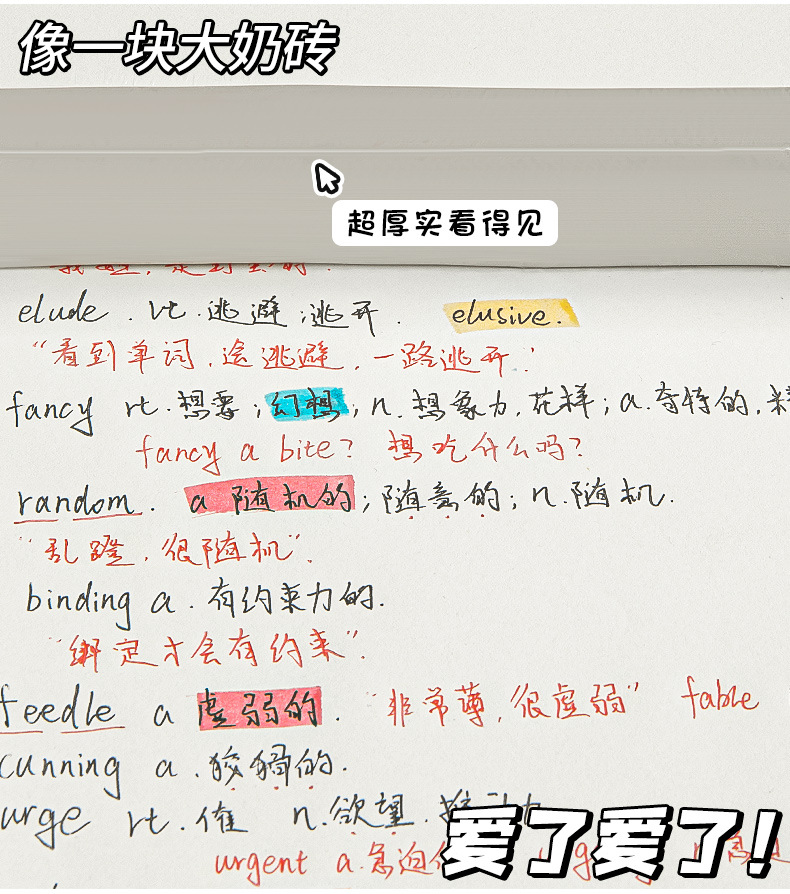 像一块大奶砖
超厚实看得见
elude . vt. 逃避;逃开. elusive.
"看到单词,途逃避,一路逃开.
fancy vt. 想要;幻想;n. 想象力,花样;a. 奇特的,
fancy a bite? 想吃什么吗?
random. a 随机的;随意的;n. 随机.
"乱蹬,很随机".
binding a. 有约束力的.
"绑定才会有约束".
feedle a 虚弱的. "非常薄,很虚弱" fable
cunning a. 狡猾的.
urge vt. 催 n. 欲望.
爱了爱了!
urgent a. 急迫